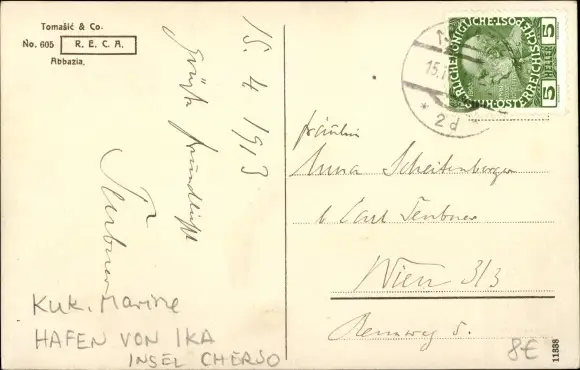 Tomašić & Co.
No. 605 R. E. C. A.
Abbazia.
15. 4 1913
Grüßt freundlichst
Teubner
Kuk. Marine
HAFEN VON IKA
INSEL CHERSO
5 HELLER 5
15.
* 2d
Fräulein
Anna Scheitenberger
b Carl Teubner
Wien 3/3
Rennweg 5.
8€
11888